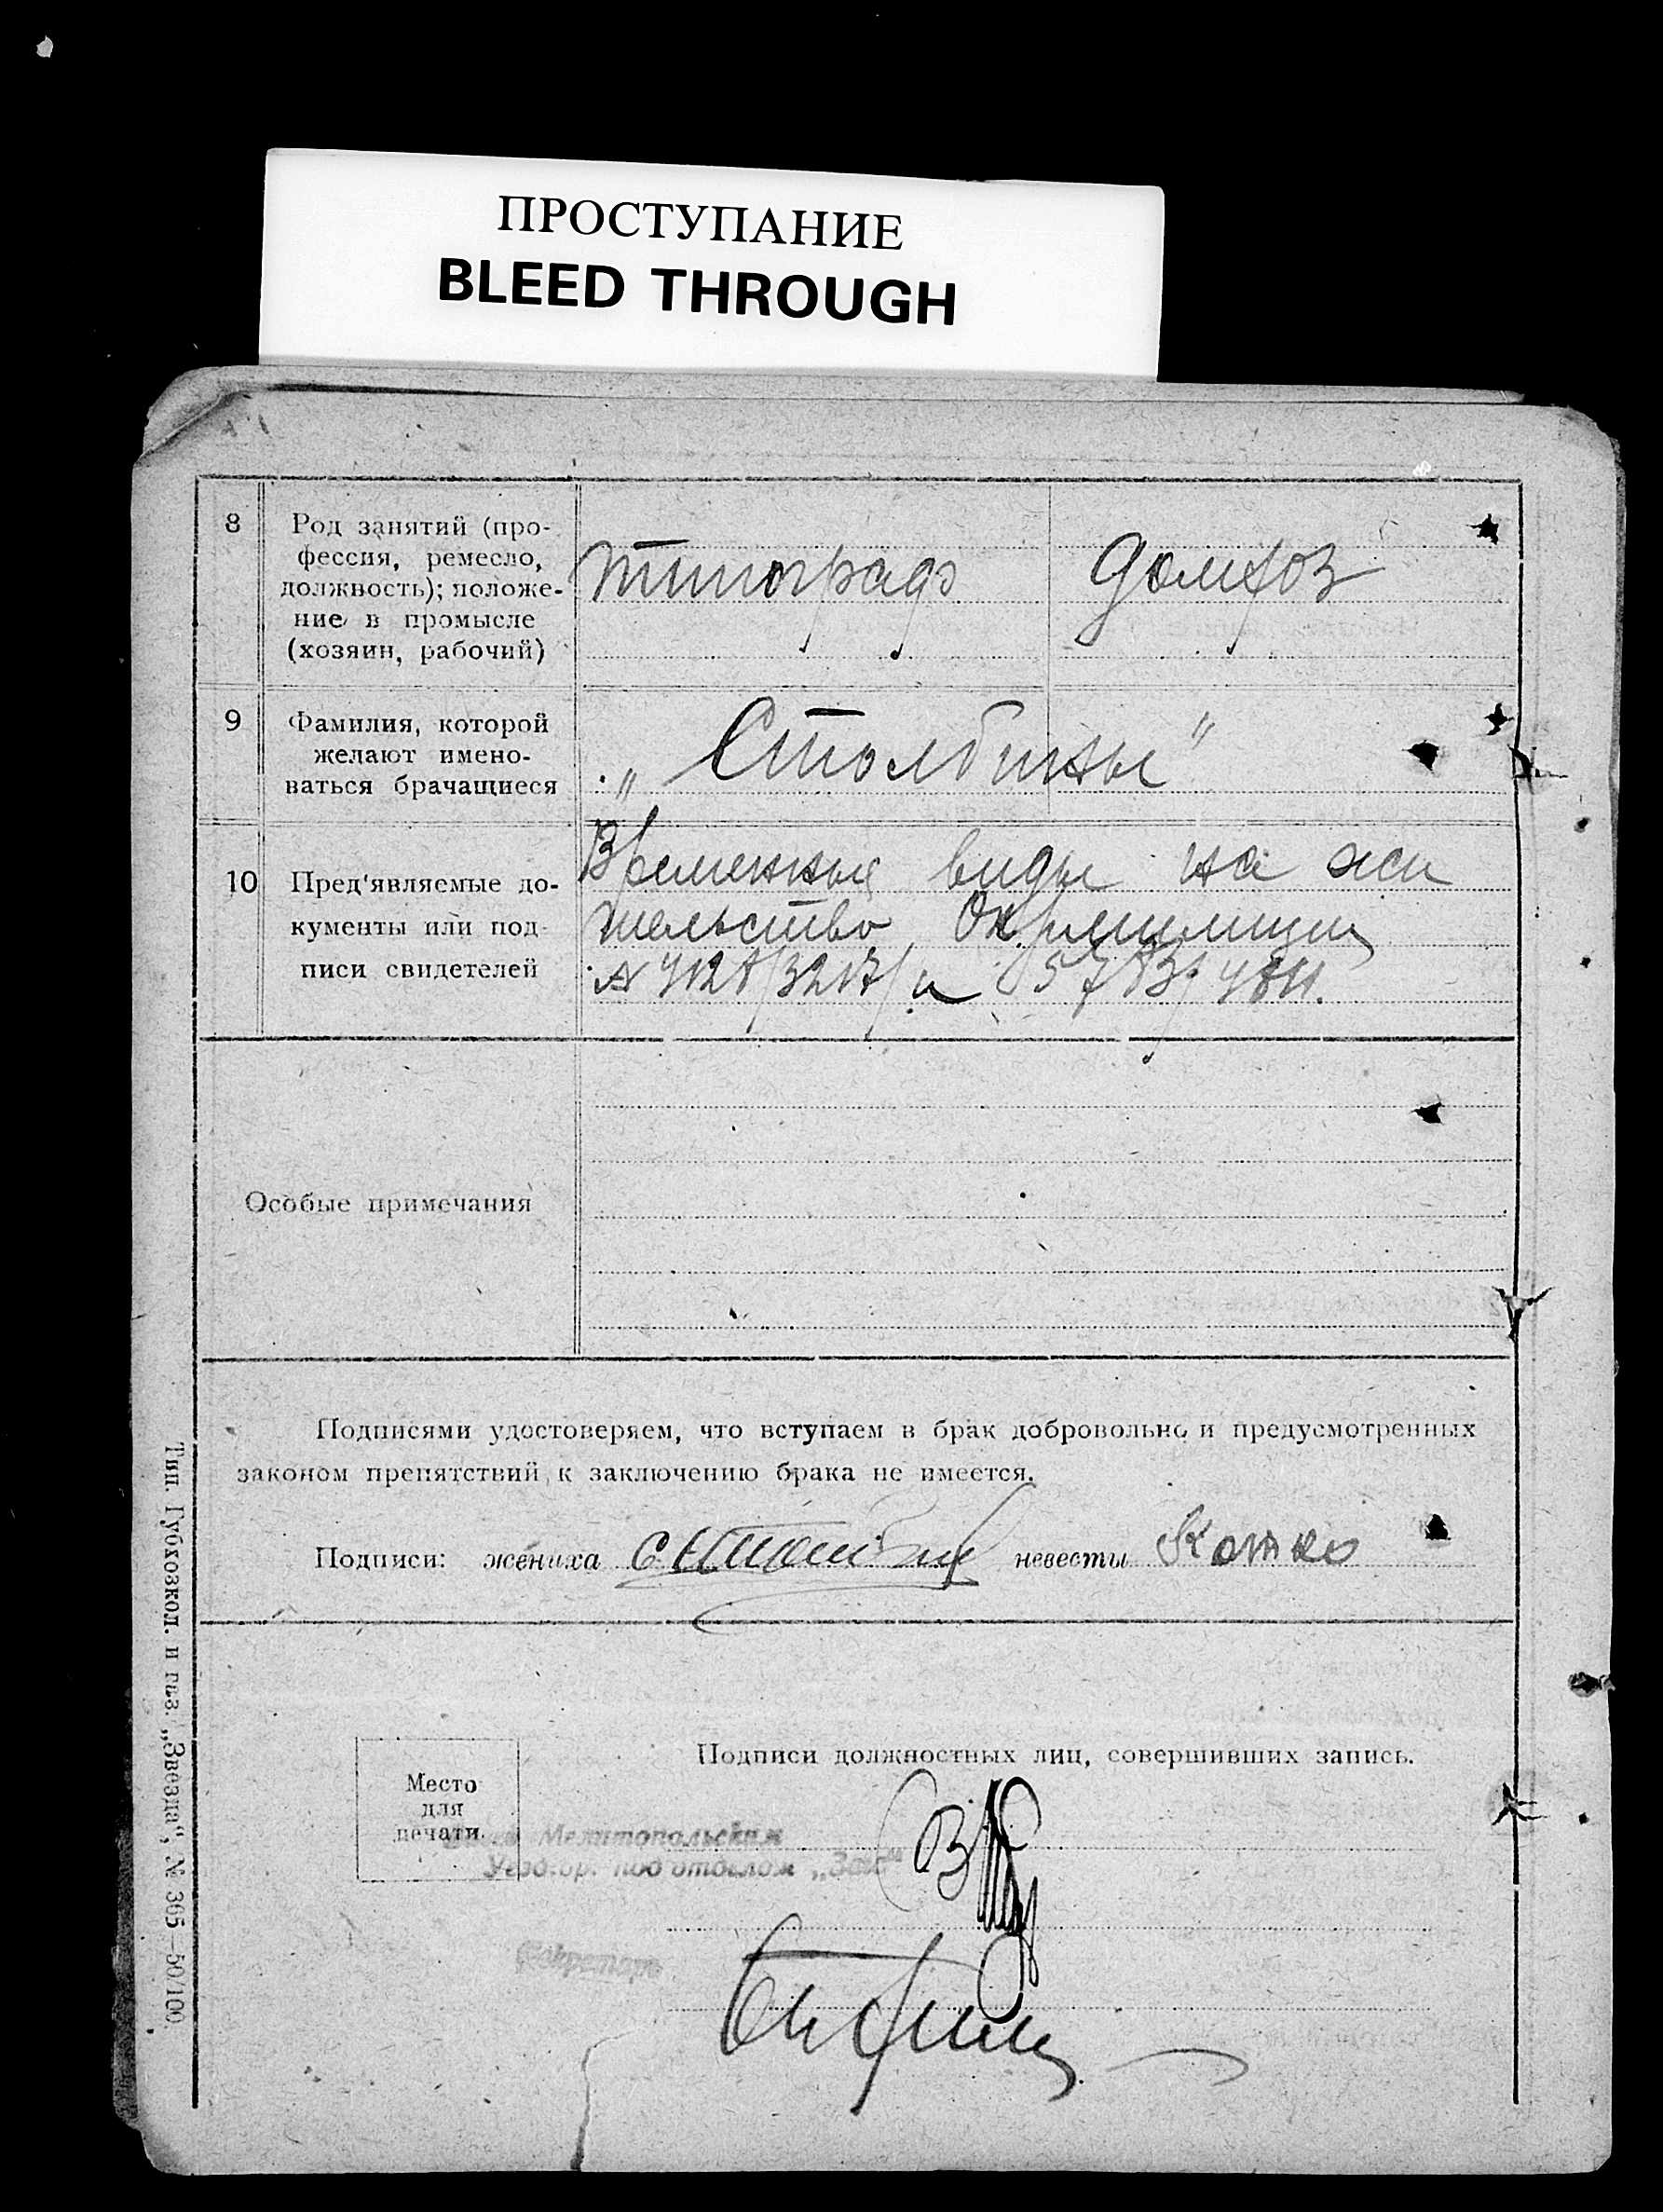 ПРОСТУПАНИЕ
BLEED THROUGH
8 Род занятий (про-
фессия, ремесло,
должность); положе-
ние в промысле
(хозяин, рабочий)
типограф домхоз
9 Фамилия, которой
желают имено-
ваться брачащиеся
„Столбины"
10 Пред'являемые до-
кументы или под-
писи свидетелей
Временные виды на жи
тельство Окрмилиции
и
Особые примечания
Подписями удостоверяем, что вступаем в брак добровольно и предусмотренных
законом препятствий к заключению брака не имеется.
Подписи: жениха невесты Котко
Подписи должностных лиц, совершивших запись.
Место
для
печати
Мелитопольским
под отделом „Загс"
Секретарь
Тип. Губхозкол. и газ. „Звезда", № 365—50/100.